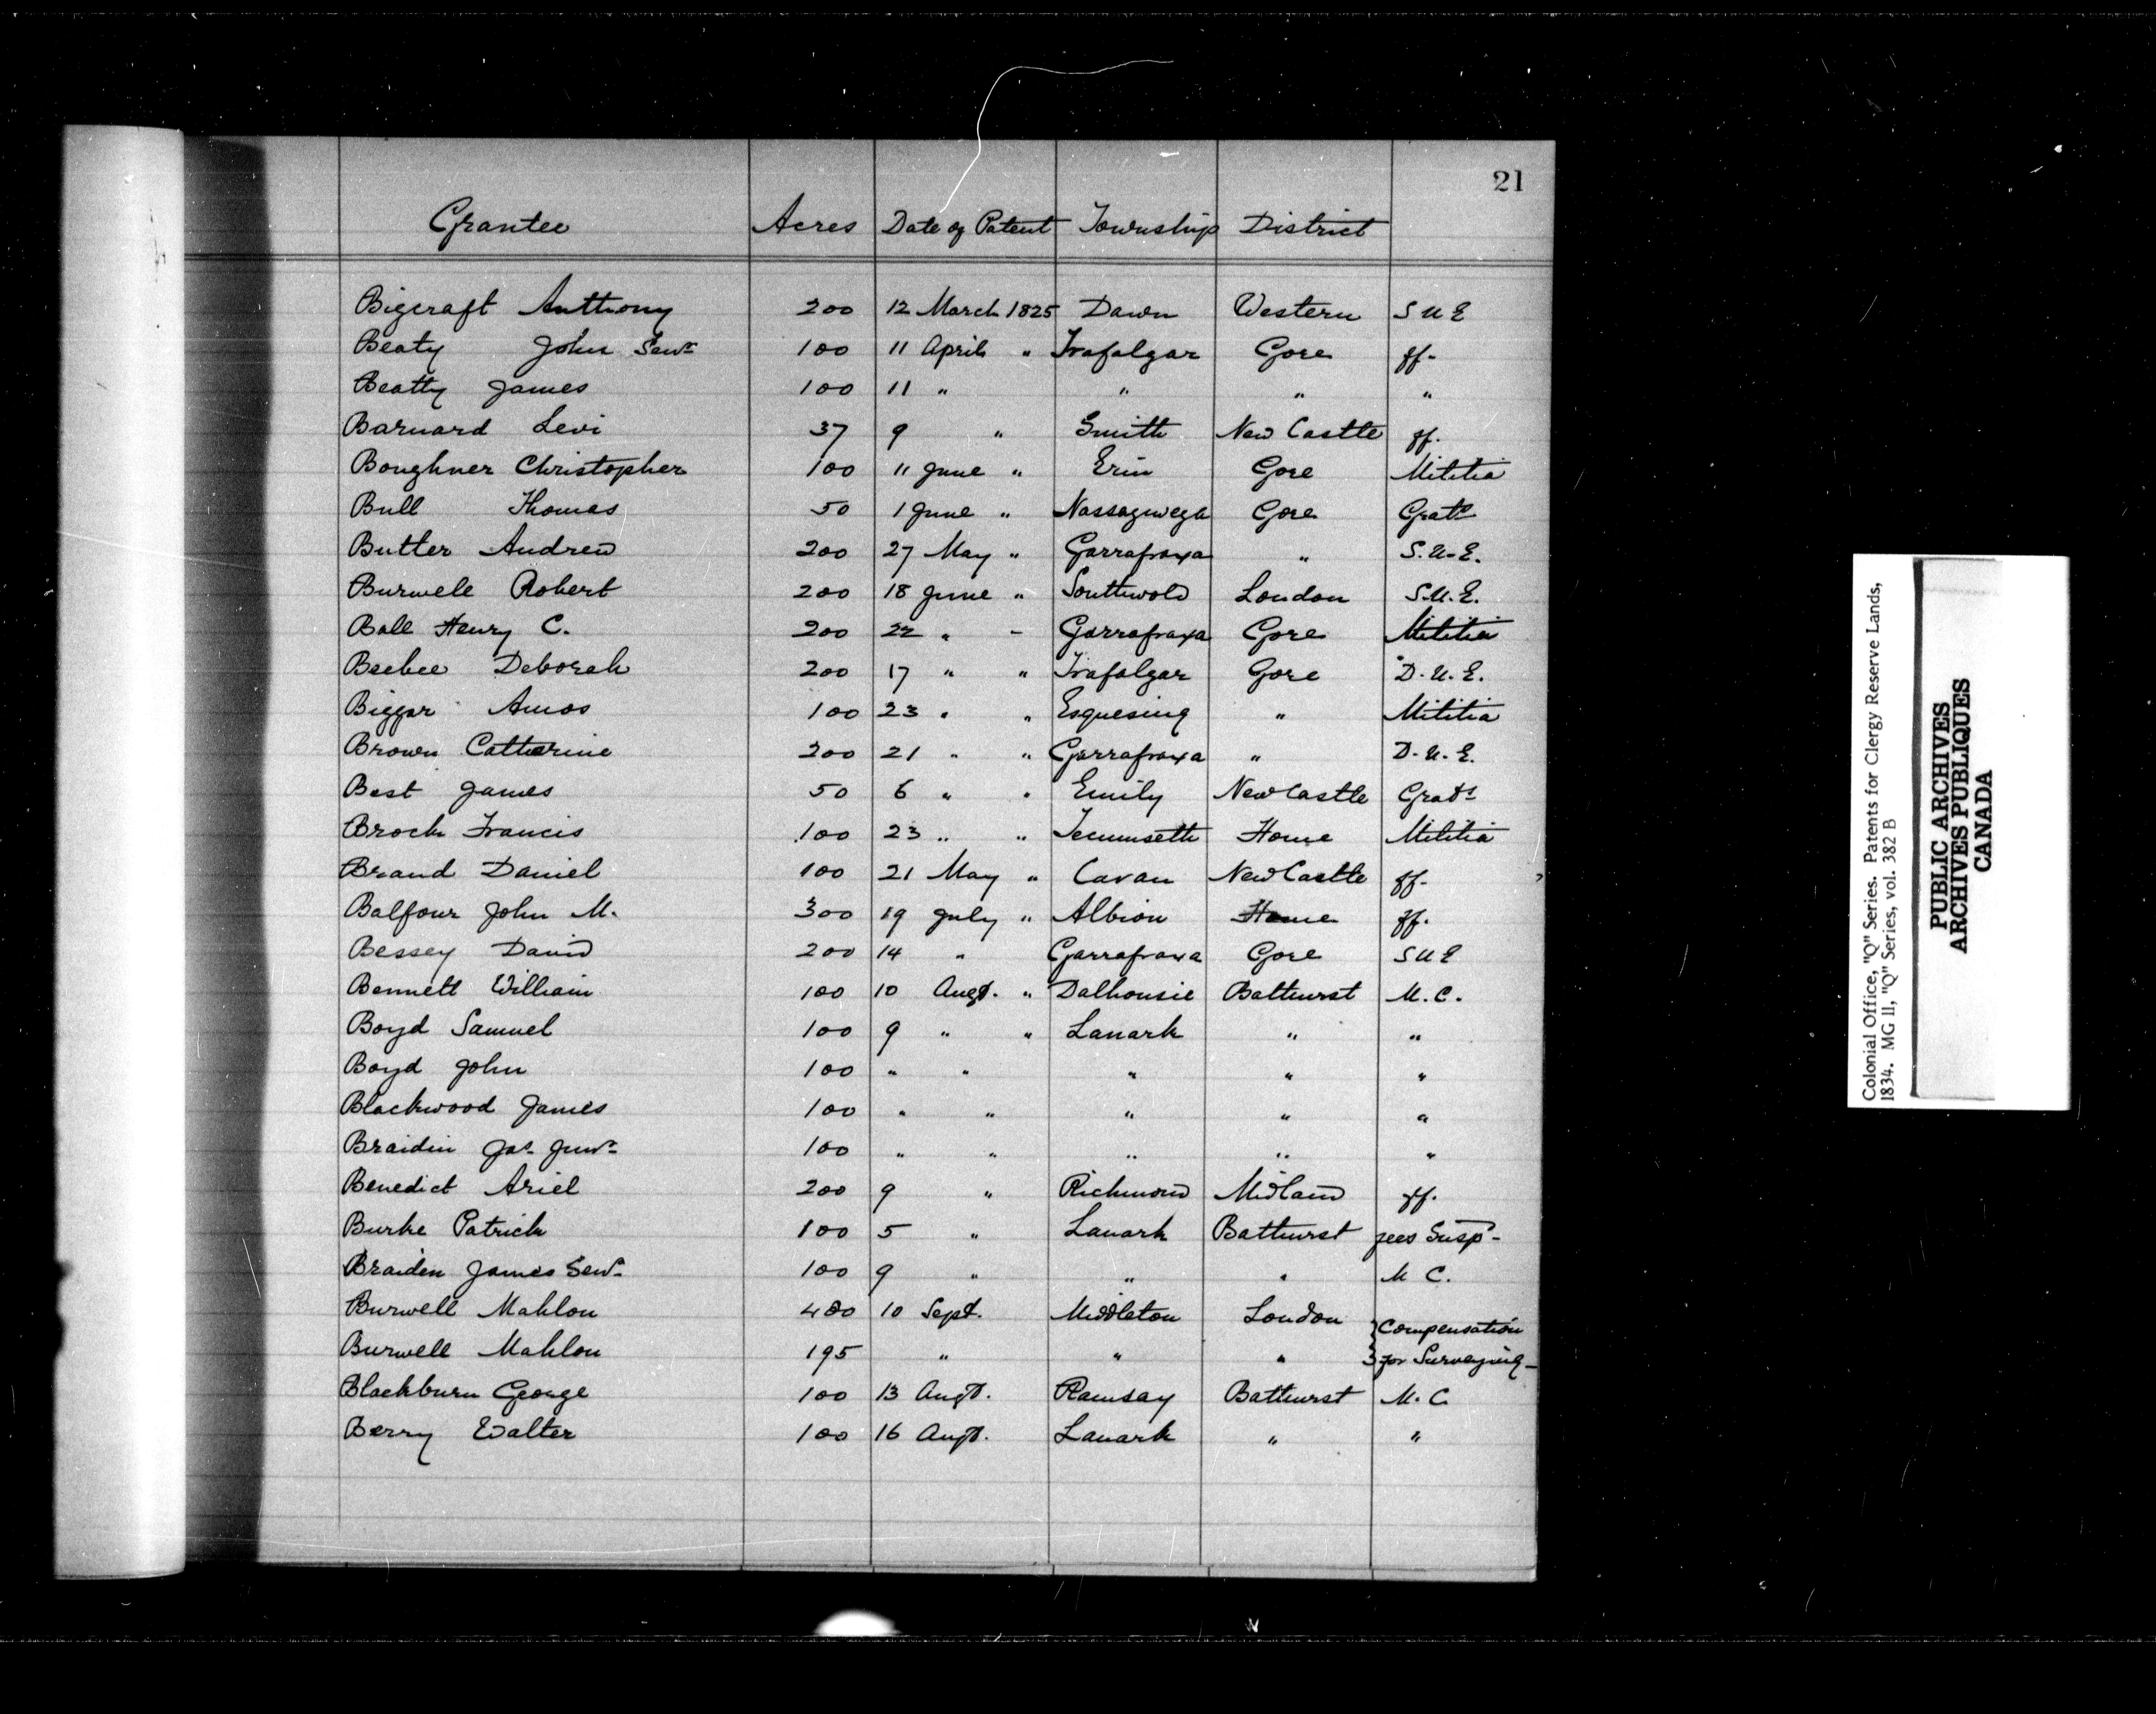 21
Grantee Acres Date of Patent Township District
Bigcraft Anthony 200 12 March 1825 Dawn Western S U E
Beaty John Senr 100 11 April " Trafalgar Gore ff.
Beatty James 100 11 " " " "
Barnard Levi 37 9 " Smith New Castle ff.
Boughner Christopher 100 11 June " Erin Gore Militia
Bull Thomas 50 1 June " Nassagwega Gore Grats
Butler Andrew 200 27 May " Garrafraxa " S.U.E.
Burwell Robert 200 18 June " Southwold London S.U.E.
Ball Henry C. 200 22 " - Garrafraxa Gore Militia
Beebee Deborah 200 17 " " Trafalgar Gore D.U.E.
Biggar Amos 100 23 " " Esquesing " Militia
Brown Catherine 200 21 " " Garrafraxa " D.U.E.
Best James 50 6 " " Emily New Castle Grats
Brock Francis 100 23 " " Tecumseth Home Militia
Brand Daniel 100 21 May " Cavan New Castle ff.
Balfour John M. 300 19 July " Albion Home ff.
Bessey David 200 14 " Garrafraxa Gore S U E
Bennett William 100 10 Augt. " Dalhousie Bathurst M.C.
Boyd Samuel 100 9 " " Lanark " "
Boyd John 100 " " " " "
Blackwood James 100 " " " " "
Braidin Jas. Junr 100 " " " " "
Benedict Ariel 200 9 " Richmond Midland ff.
Burke Patrick 100 5 " Lanark Bathurst fees Susp-
Braiden James Senr 100 9 " " " M C.
Burwell Mahlon 400 10 Sept. Middleton London } Compensation
Burwell Mahlon 195 " " " } for Surveying-
Blackburn George 100 13 Augt. Ramsay Bathurst M.C
Berry Walter 100 16 Augt. Lanark " "
Colonial Office, "Q" Series. Patents for Clergy Reserve Lands,
1834. MG 11, "Q" Series, vol. 382 B
PUBLIC ARCHIVES
ARCHIVES PUBLIQUES
CANADA